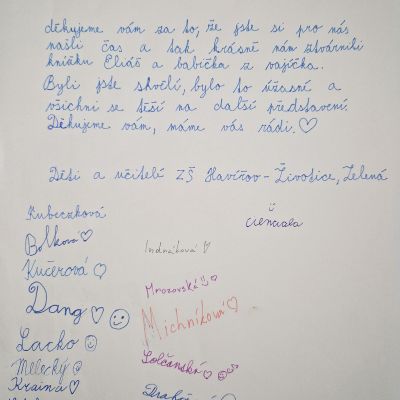 děkujeme vám za to, že jste si pro nás
našli čas a tak krásně nám ztvárnili
knížku Eliáš a babička z vajíčka.
Byli jste skvělí, bylo to úžasné a
všichni se těší na další představení.
Děkujeme vám, máme vás rádi. ♡
Děti a učitelé ZŠ Havířov - Životice, Zelená
Kubeczková
Cienciala
Bolková ♡
Indráková ♡
Kučerová ♡
Mrozovská ♡
Dang ♡ ☺
Michniková ♡
Lacko ☺
Solčanská ♡ ☺
Melecký ☺
Kraina ♡